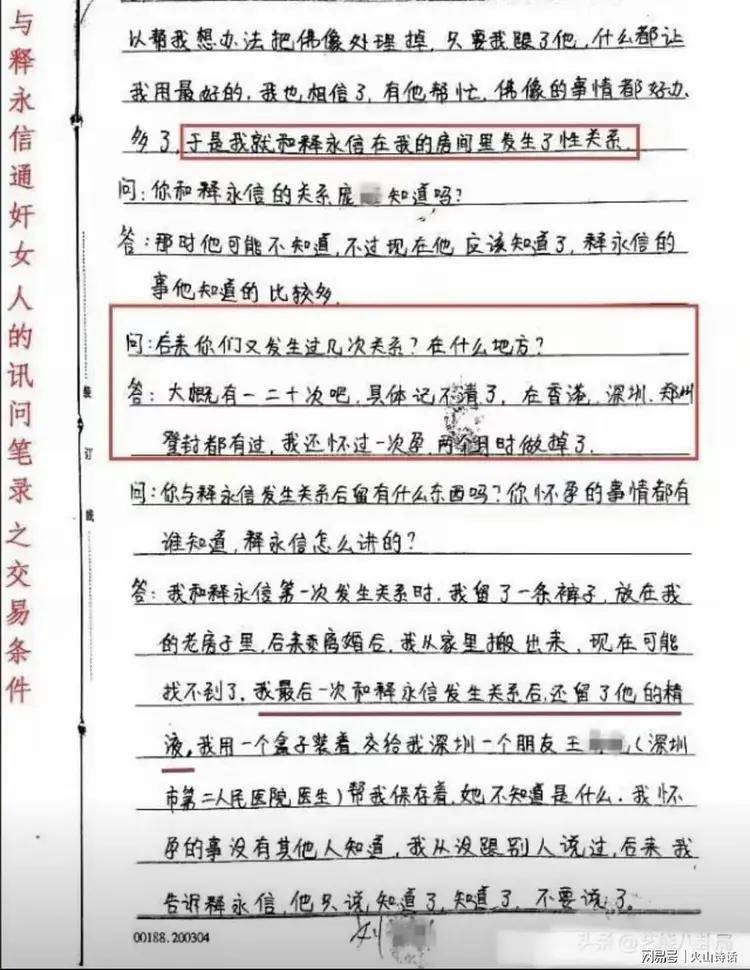 与释永信通奸女人的讯问笔录之交易条件
以帮我想办法把佛像处理掉，只要我跟了他，什么都让
我用最好的，我也相信了，有他帮忙，佛像的事情都好办
多了，于是我就和释永信在我的房间里发生了性关系。
问：你和释永信的关系庞 知道吗？
答：那时他可能不知道，不过现在他应该知道了，释永信的
事他知道的比较多。
问：后来你们又发生过几次关系？在什么地方？
答：大概有一二十次吧，具体记不清了，在香港、深圳、郑州
登封都有过，我还怀过一次孕，两个月时做掉了。
问：你与释永信发生关系后留有什么东西吗？你怀孕的事情都有
谁知道，释永信怎么讲的？
答：我和释永信第一次发生关系时，我留了一条裤子，放在我
的老房子里，后来离婚后，我从家里搬出来，现在可能
找不到了，我最后一次和释永信发生关系后，还留了他的精
液，我用一个盒子装着，交给我深圳一个朋友王 （深圳
市第二人民医院医生）帮我保存着，她不知道是什么。我怀
孕的事没有其他人知道，我从没跟别人说过，后来我
告诉释永信，他只说知道了，知道了，不要说了。
装
订
线
00188.200304
刘
头条@艺能八卦局
网易号 | 火山诗话